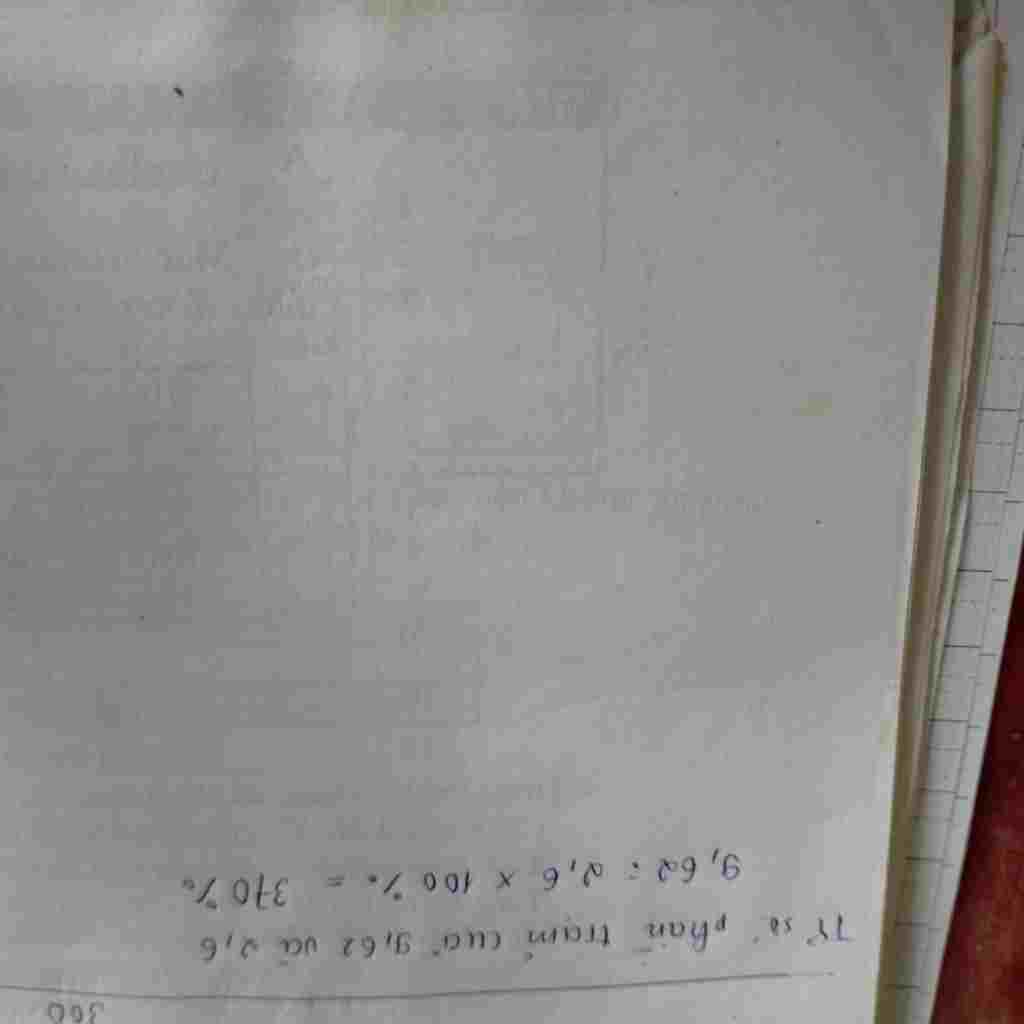 360
Tỷ số phần trăm của 9,62 và 2,6
9,62 : 2,6 x 100 % = 370 %